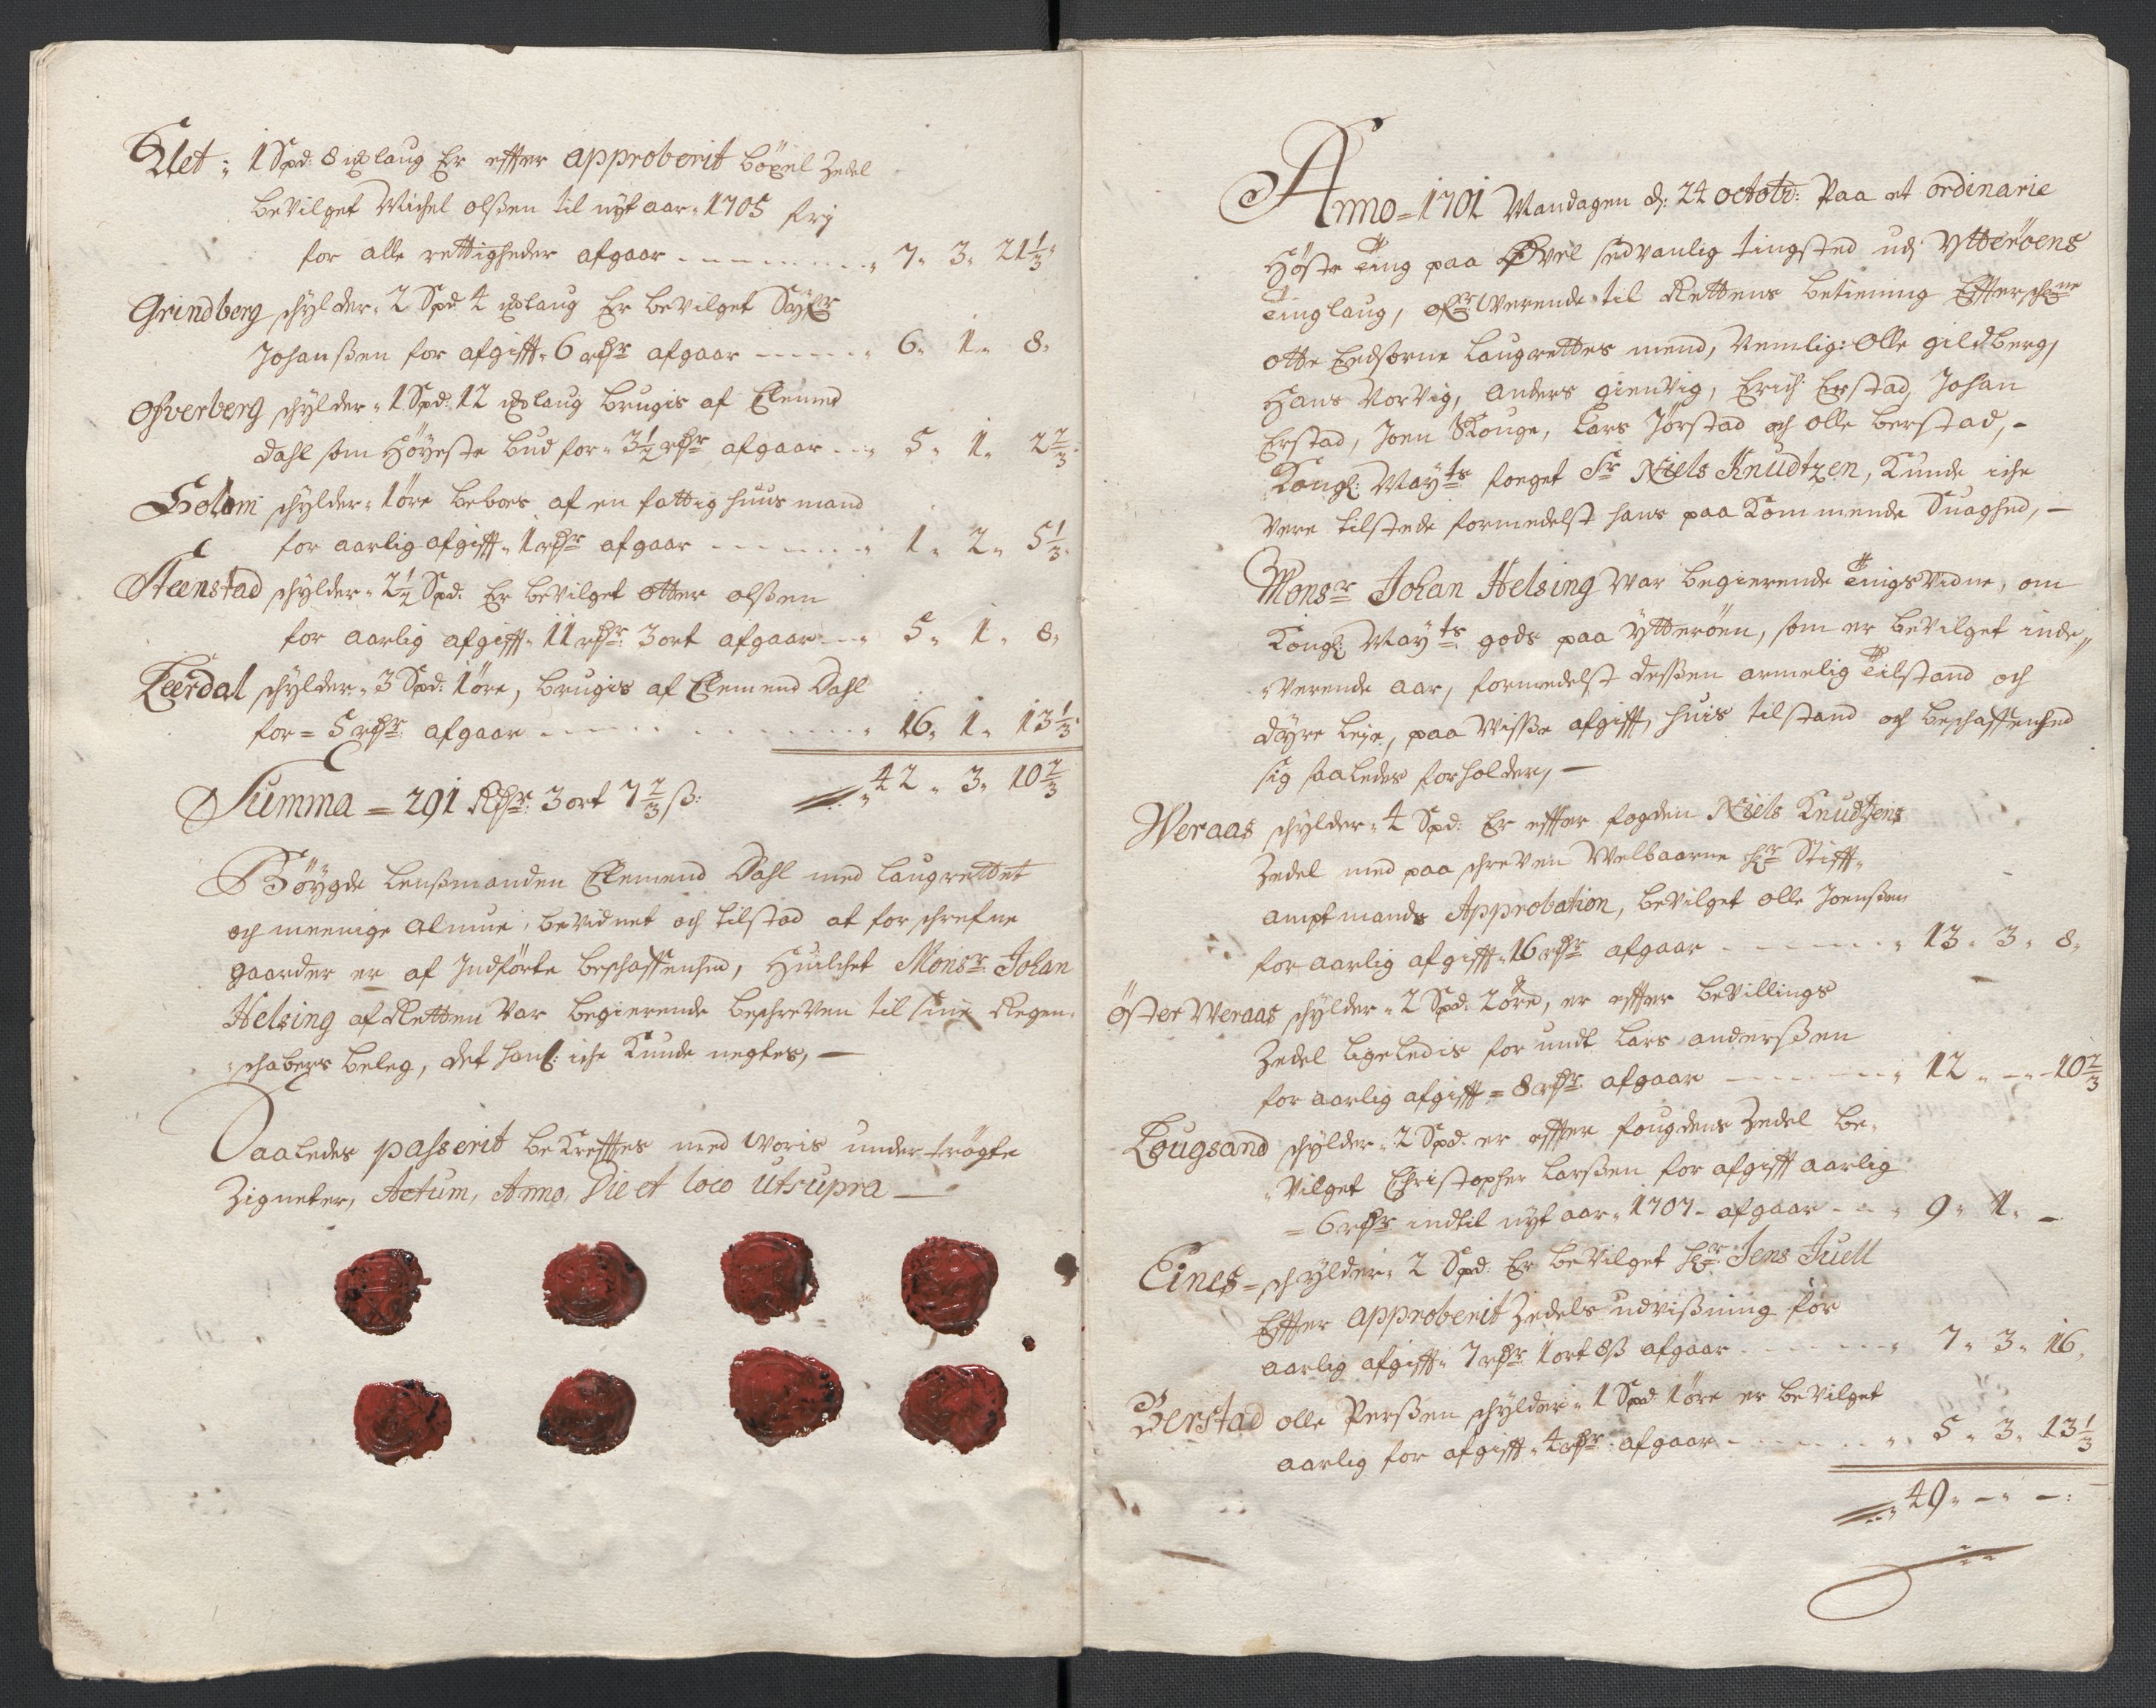 Klet: 1 Spd: 8 mklaug Er effter approberit böxel Zedel
beVilget Michel olßen til nyt aar 1705 frj
for alle rettigheder afgaar - - - - 7. 3. 21 1/3
Grindberg schylder 2 Spd 4 mklaug Er beVilget
Johanßen for afgifft 6 rdr afgaar - - - - 6. 1. 8.
Ofverberg schylder 1 Spd: 12 mklaug brugis af Clemed
Dahl som Höyeste bud for 3 1/2 rdr afgaar - - 5. 1. 2 2/3
Holem schylder 1 öre beboes af en fattig huusmand
for aarlig afgifft 1 rdr afgaar - - - - 1. 2. 5 1/3
Steenstad schylder 2 1/2 Spd: Er beVilget otter olßen
for aarlig afgifft 11 rdr 3 ort afgaar - - 5. 1. 8.
Leerdal schylder 3 Spd: 1 öre, brugis af Clemend Dahl
for = 5 rdr: afgaar - - - - 16. 1. 13 1/3
Summa = 291 Rdr: 3 ort 7 2/3 ß: 42. 3. 10 2/3
Böygde Lenßmanden Clemend Dahl med Laugrettet
och meenige Almue, beVidnet och tilstod at forschrefne
gaarder er af Indförte beschaffenhed, Huilchet Monsr Johan
Helsing af Retten Var begierende beschreVen til sine Regen-
schabers beleg, det hanß: iche Kunde negtes, —
Saaledes passerit beKrefftes med Woris undertrögte
Zigneter, Actum, Anno, Die et loco Utsupra —
Anno = 1701 Mandagen d: 24 octobr: Paa et ordinarie
Höste Ting paa Øvel sedvanlig tingsted udj Ytteröens
Tinglaug, ofrWerende til Rettens betiening Effterschrne
otte Eedsorne Laugrettes mend, Nemlig: Olle gildberg,
Hans Vorvig, Anders gienvig, Erich Erstad, Johan
Erstad, Joen Skouge, Lars Jörstad och olle berstad, -
Kongl: Mayts foeget Sr Niels Knudtzen, Kunde iche
Vere tilstede formedelst hans paa Kommende Suaghed, —
Monsr Johan Helsing War begierende TingsVidne, om
Kongl: Mayts gods paa Ytteröen, som er beVilget inde-
Werende aar, formedelst desßen armelig Tilstand och
dyre Leje, paa Wisße afgifft, huis tilstand och beschaffenhed
sig saaledes forholder, —
Weraas schylder 4 Spd: Er effter fogden Niels Knudtzens
Zedel med paa schreVen Welbaarne Hr Stifft-
amptmands Approbation, beVilget olle Joenßen
for aarlig afgifft 16 rdr afgaar - - - - 13. 3. 8.
öster Weraas schylder 2 Spd: 2 öre, er effter beVillings
Zedel ligeledis forundt Lars anderßen
for aarlig afgifft = 8 rdr: afgaar - - - - 12. - 10 2/3
Lougsand schylder 2 Spd: er effter fougdens Zedel be-
Vilget Christopher Larßen for afgifft aarlig
= 6 rdr indtil nyt aar 1707 - afgaar - - 9. 1. -
Eines = schylder 2 Spd: Er beVilget Hr: Jens Juell
Effter approberit Zedels udvißning for
aarlig afgifft 7 rdr: 1 ort 8 ß afgaar - - - - 7. 3. 16.
Berstad olle Perßen schylder 1 Spd 1 öre er beVilget
aarlig for afgifft 4 rdr: afgaar - - - - 5. 3. 13 1/3
49. - -